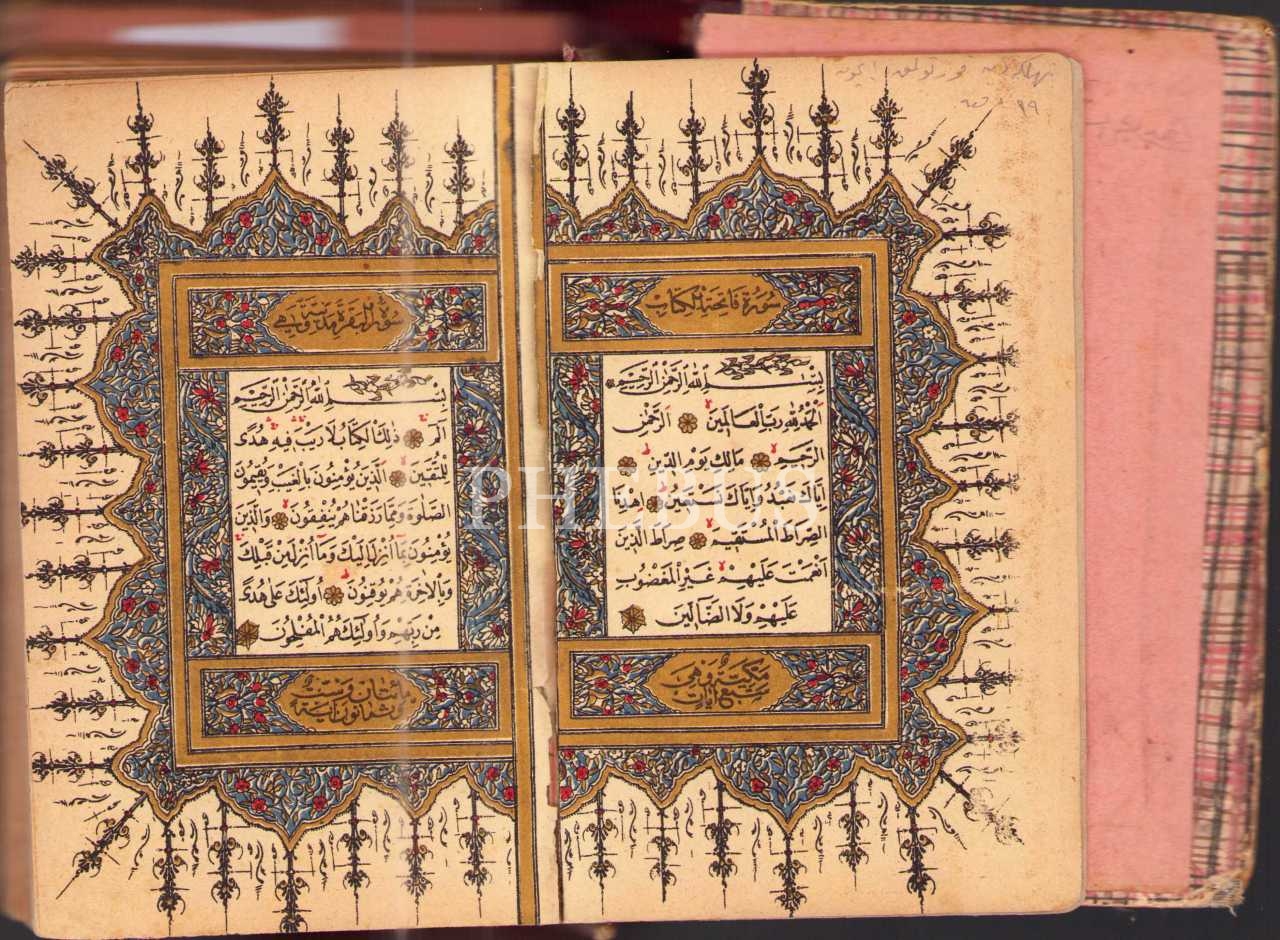 سُورَةُ فَاتِحَةِ الْكِتَابِ
بِسْمِ اللهِ الرَّحْمٰنِ الرَّحِيمِ
اَلْحَمْدُ لِلّٰهِ رَبِّ الْعَالَمِينَ اَلرَّحْمٰنِ
الرَّحِيمِ مَالِكِ يَوْمِ الدِّينِ
اِيَّاكَ نَعْبُدُ وَاِيَّاكَ نَسْتَعِينُ اِهْدِنَا
الصِّرَاطَ الْمُسْتَقِيمَ صِرَاطَ الَّذِينَ
اَنْعَمْتَ عَلَيْهِمْ غَيْرِ الْمَغْضُوبِ
عَلَيْهِمْ وَلَا الضَّالِّينَ
مَكِّيَّةٌ وَهِيَ
سَبْعُ آيَاتٍ
سُورَةُ الْبَقَرَةِ مَدَنِيَّةٌ وَهِيَ
بِسْمِ اللهِ الرَّحْمٰنِ الرَّحِيمِ
الٓمٓ ذٰلِكَ الْكِتَابُ لَا رَيْبَ فِيهِ هُدًى
لِلْمُتَّقِينَ اَلَّذِينَ يُؤْمِنُونَ بِالْغَيْبِ وَيُقِيمُونَ
الصَّلٰوةَ وَمِمَّا رَزَقْنَاهُمْ يُنْفِقُونَ وَالَّذِينَ
يُؤْمِنُونَ بِمَا اُنْزِلَ اِلَيْكَ وَمَا اُنْزِلَ مِنْ قَبْلِكَ
وَبِالْاٰخِرَةِ هُمْ يُوقِنُونَ اُولٰئِكَ عَلٰى هُدًى
مِنْ رَبِّهِمْ وَاُولٰئِكَ هُمُ الْمُفْلِحُونَ
مِائَتَانِ وَسِتٌّ
وَثَمَانُونَ آيَةً
PHEBUS